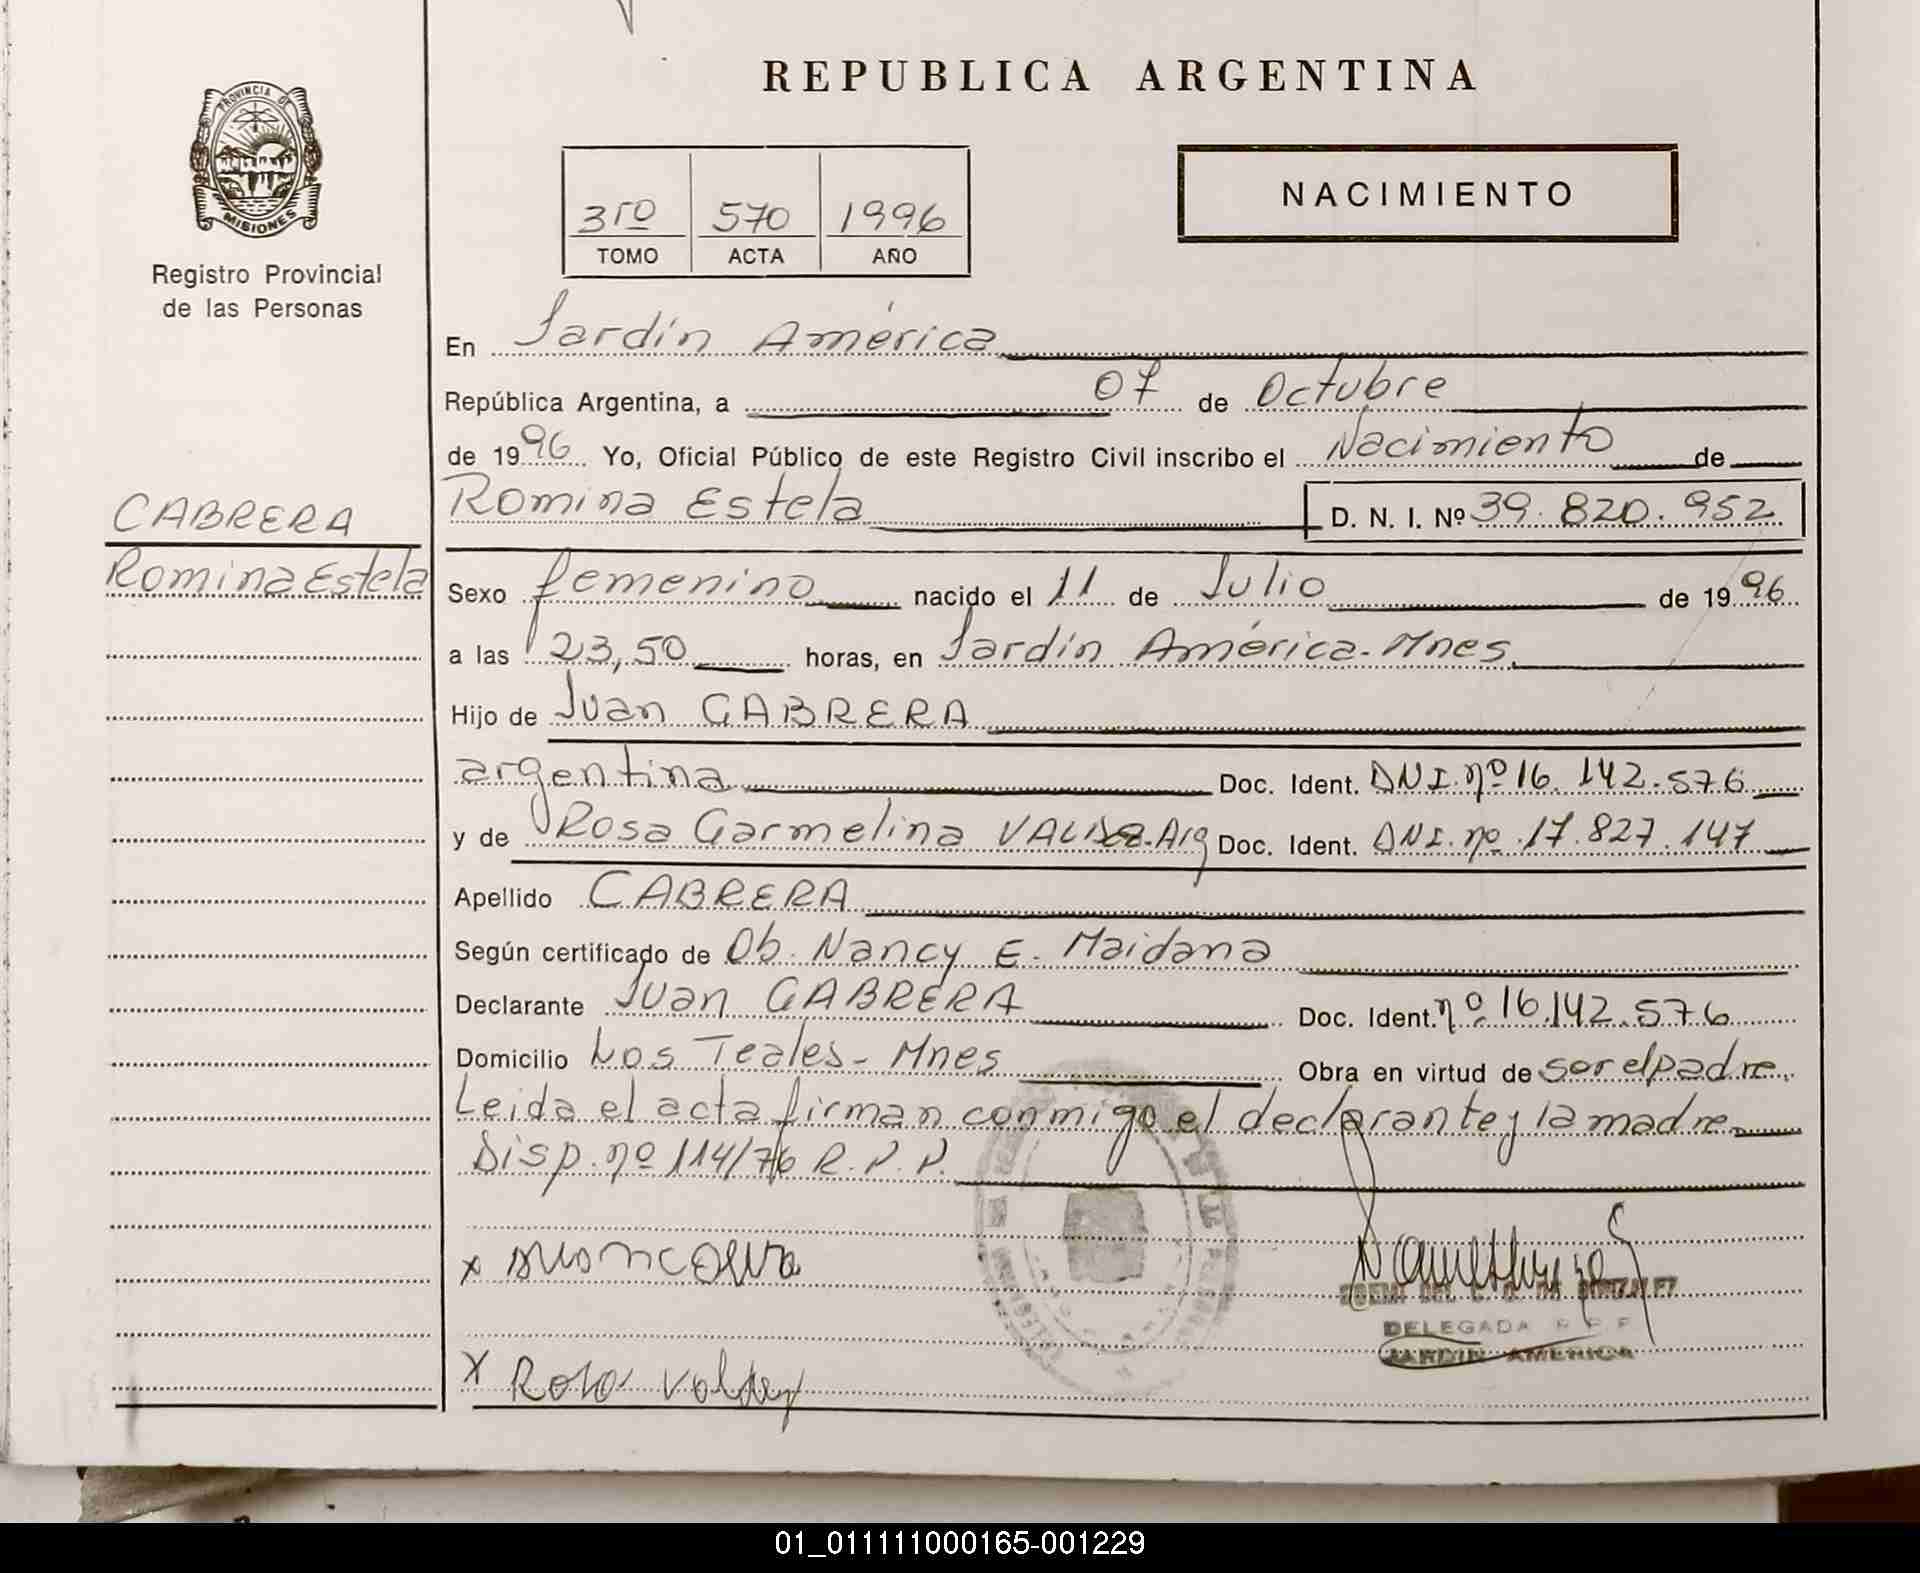 REPUBLICA ARGENTINA
PROVINCIA DE
MISIONES
Registro Provincial
de las Personas
3ro 570 1996
TOMO ACTA AÑO
NACIMIENTO
En Jardín América
República Argentina, a 07 de Octubre
de 1996 Yo, Oficial Público de este Registro Civil inscribo el Nacimiento de
Romina Estela D. N. I. Nº 39.820.952
CABRERA
Romina Estela
Sexo femenino nacido el 11 de Julio de 1996
a las 23,50 horas, en Jardín América-Mnes
Hijo de Juan CABRERA
argentina Doc. Ident. DNI.nº 16.142.576
y de Rosa Carmelina Arg Doc. Ident. DNI.nº 17.827.147
Apellido CABRERA
Según certificado de Ob. Nancy E. Maidana
Declarante Juan CABRERA Doc. Ident. nº 16.142.576
Domicilio Los Teales-Mnes Obra en virtud de ser el padre
Leida el acta firman conmigo el declarante y la madre
Disp.nº 114/76 R.P.P.
x
DEL GONZALEZ
DELEGADA R P P
JARDIN AMERICA
x Rosa Valdez
01_011111000165-001229